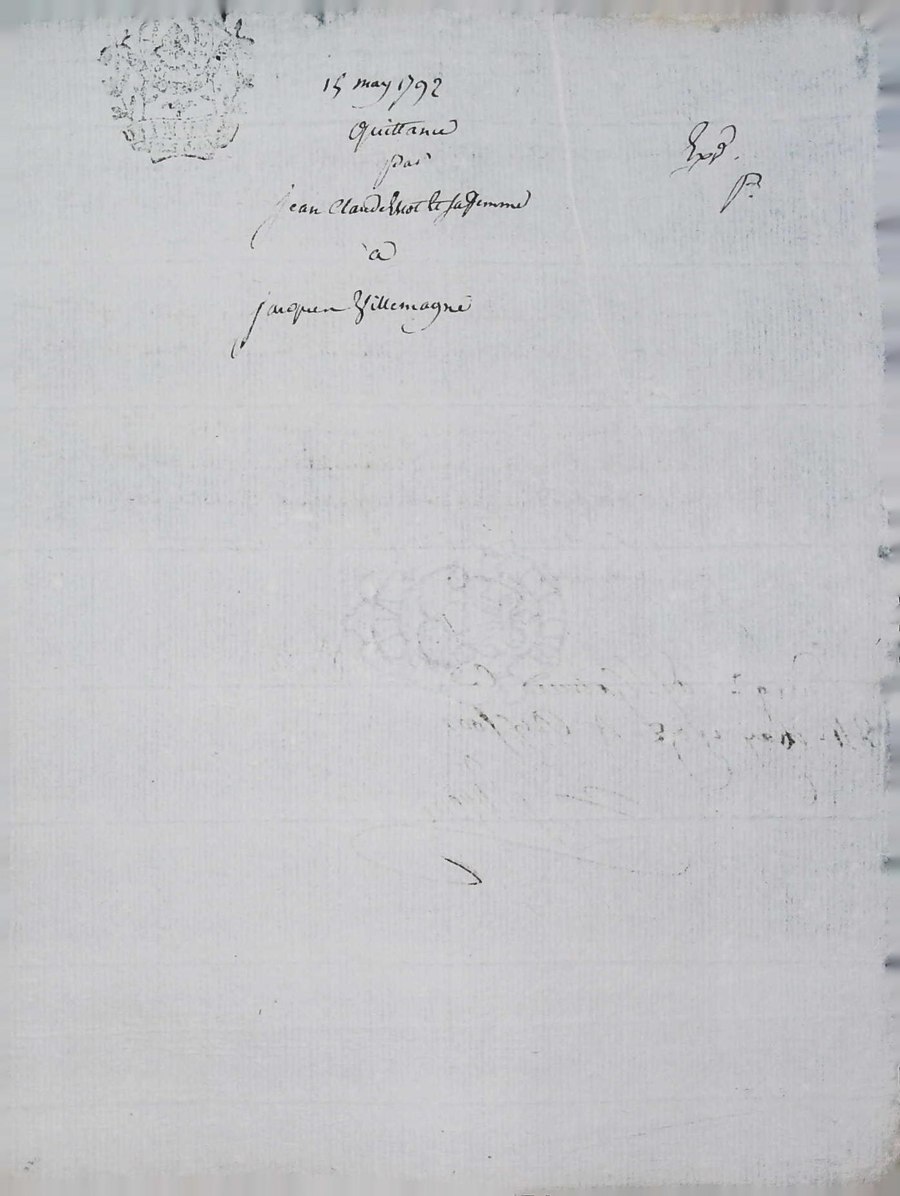 15 may 1792
Quittance
par
Jean Claude et sa femme
à
Jacques Villemagne
Expd.
P.